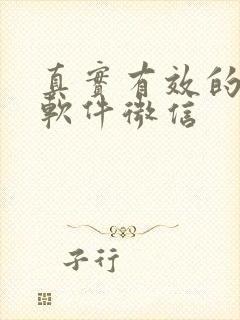 真實有效的
軟件微信
子行